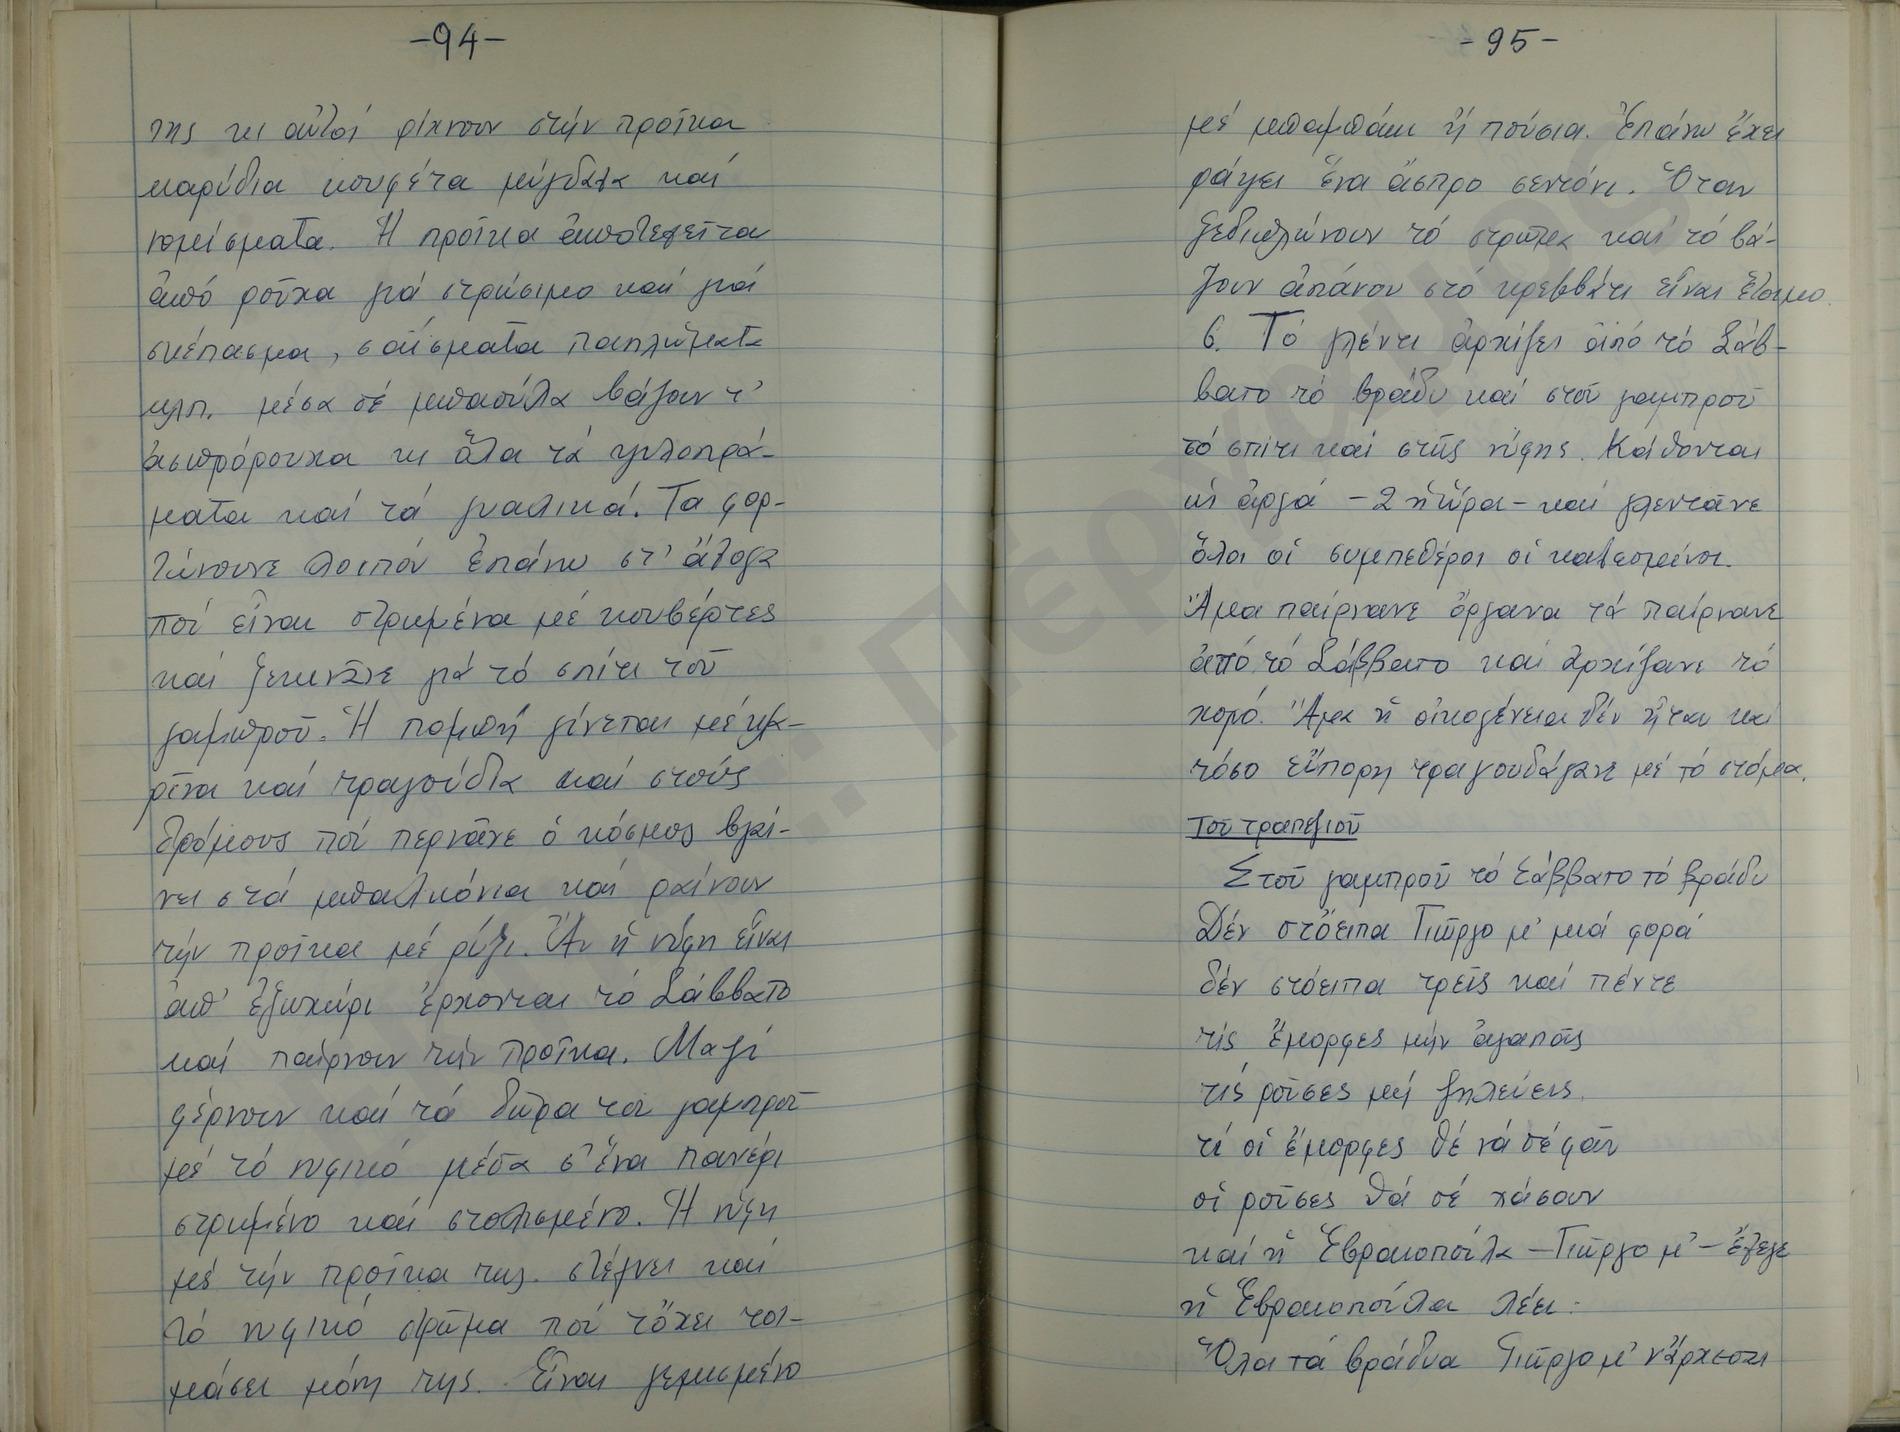 -94-
της κι αὐτοί ρίχνουν στήν προῖκα
καρύδια κουφέτα μύγδαλα καί
νομίσματα. Ἡ προῖκα ἀποτελεῖται
ἀπό ροῦχα γιά στρώσιμο καί γιά
σκέπασμα, σαΐσματα παπλώματα
κλπ. μέσα σέ μπαοῦλα βάζουν τ'
ἀσπρόρουχα κι ὅλα τά ψιλοπρά-
ματα καί τά γυαλικά. Τα φορ-
τώνουνε λοιπόν ἐπάνω στ' ἄλογα
πού εἶναι στρωμένα μέ κουβέρτες
καί ξεκινᾶνε γιά τό σπίτι τοῦ
γαμπροῦ. Ἡ πομπή γίνεται μέ κλα-
ρῖνα καί τραγούδια καί στούς
δρόμους πού περνᾶνε ὁ κόσμος βγαί-
νει στά μπαλκόνια καί ραίνουν
τήν προῖκα μέ ρύζι. Ἄν ἡ νύφη εἶναι
ἀπ' ἐξωχώρι ἔρχονται τό Σάββατο
καί παίρνουν τήν προῖκα. Μαζί
φέρνουν καί τά δῶρα τοῦ γαμπροῦ
μέ τό νυφικό μέσα σ' ἕνα πανέρι
στρωμένο καί στολισμένο. Ἡ νύφη
μέ τήν προῖκα της στέλνει καί
τό νυφικό στρῶμα πού τὄχει τοι-
μάσει μόνη της. Εἶναι γεμισμένο
-95-
μέ μπαμπάκι ἤ πούσια. Ἐπάνω ἔχει
ράψει ἕνα ἄσπρο σεντόνι. Ὅταν
ξεδιπλώνουν τό στρῶμα καί τό βά-
ζουν ἀπάνου στό κρεββάτι εἶναι ἕτοιμο.
6. Τό γλέντι ἀρχίζει ἀπό τό Σάβ-
βατο τό βράδυ καί στοῦ γαμπροῦ
τό σπίτι καί στῆς νύφης. Κάθονται
ὡς ἀργά -2 ἡ ὥρα- καί γλεντᾶνε
ὅλοι οἱ συμπεθέροι οἱ καλεσμένοι.
Ἅμα παίρνανε ὄργανα τά παίρνανε
ἀπό τό Σάββατο καί ἀρχίζανε τό
χορό. Ἅμα ἡ οἰκογένεια δέν ἦταν καί
τόσο εὔπορη τραγουδάγανε μέ τό στόμα.
Τοῦ τραπεζιοῦ
Στοῦ γαμπροῦ τό Σάββατο τό βράδυ
Δέν στὄειπα Γιῶργο μ' μιά φορά
δέν στόειπα τρεῖς καί πέντε
τίς ἔμορφες μήν ἀγαπᾶς
τίς ροῦσες μή ζηλεύεις.
τί οἱ ἔμορφες θέ νά σέ φᾶν
οἱ ροῦσες θά σέ χάσουν
καί ἡ Ἑβραιοπούλα - Γιῶργο μ' - ἔλεγε
ἡ Ἑβραιοπούλα λέει:
Ὅλα τά βράδυα Γιῶργο μ' νἄρχεσαι